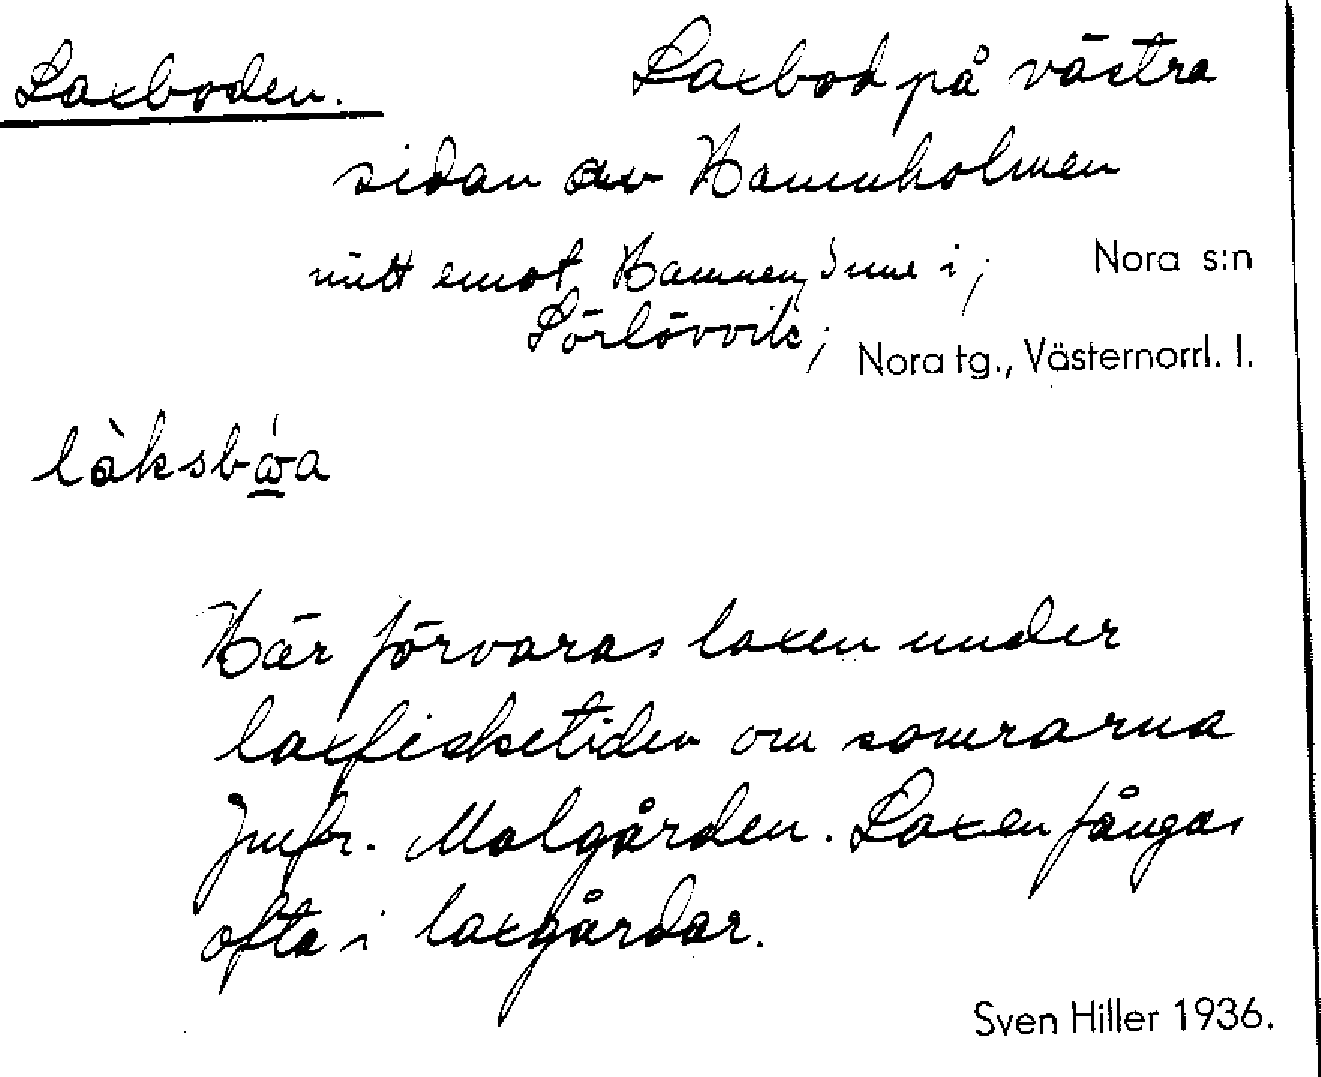 Laxboden. Laxbod på västra
sidan av Hamnholmen
mitt emot Hamnen, inne i ; Nora s:n
Sörlövvik ; Nora tg., Västernorrl. l.
làksbώ̲a
Här förvaras laxen under
laxfisketiden om somrarna
Jmfr. Malgården. Laxen fångas
ofta i laxgårdar.
Sven Hiller 1936.